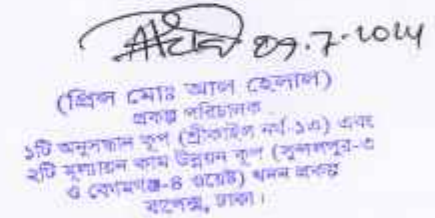 ০৭.7.2024
(প্রিন্স মোঃ আল হেলাল)
প্রকল্প পরিচালক
১টি অনুসন্ধান কূপ (শ্রীকাইল নর্থ-১এ) এবং
২টি মূল্যায়ন কাম উন্নয়ন কূপ (সুন্দলপুর-৩
ও বেগমগঞ্জ-৪ ওয়েস্ট) খনন প্রকল্প
বাপেক্স, ঢাকা।